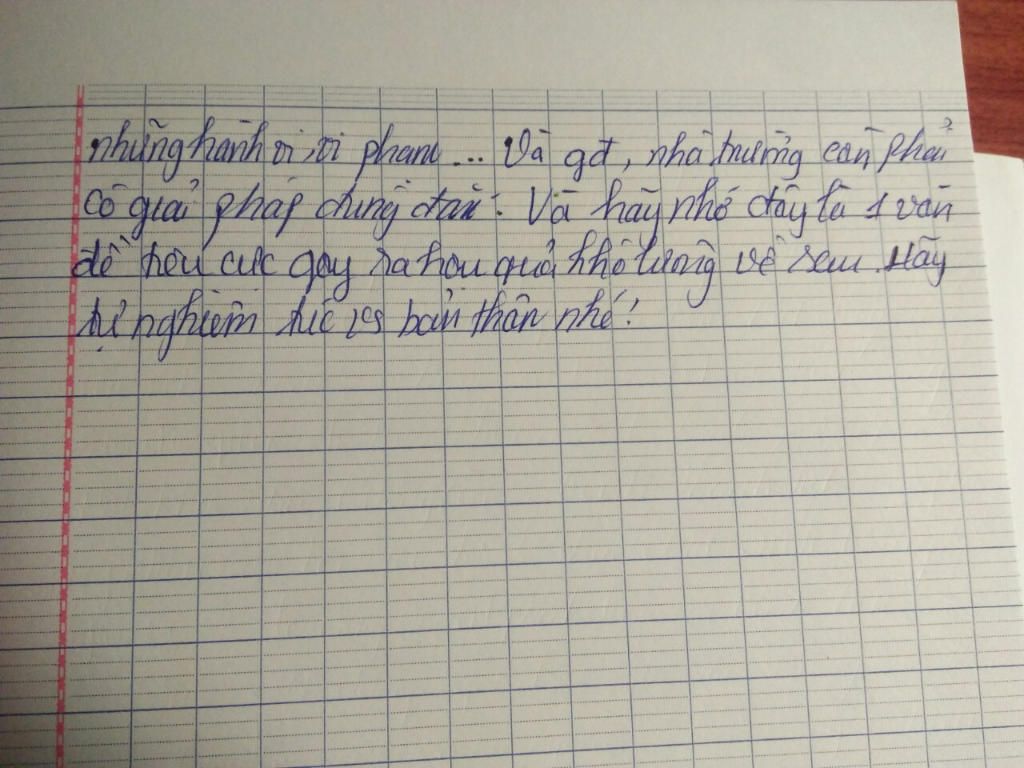 những hành vi, vi phạm ... Và gđ, nhà trường cần phải
có giải pháp đúng đắn. Và hãy nhớ đây là 1 vấn
đề tiêu cực gây ra hậu quả khó lường về sau. Hãy
tự nghiêm túc vs bản thân nhé!